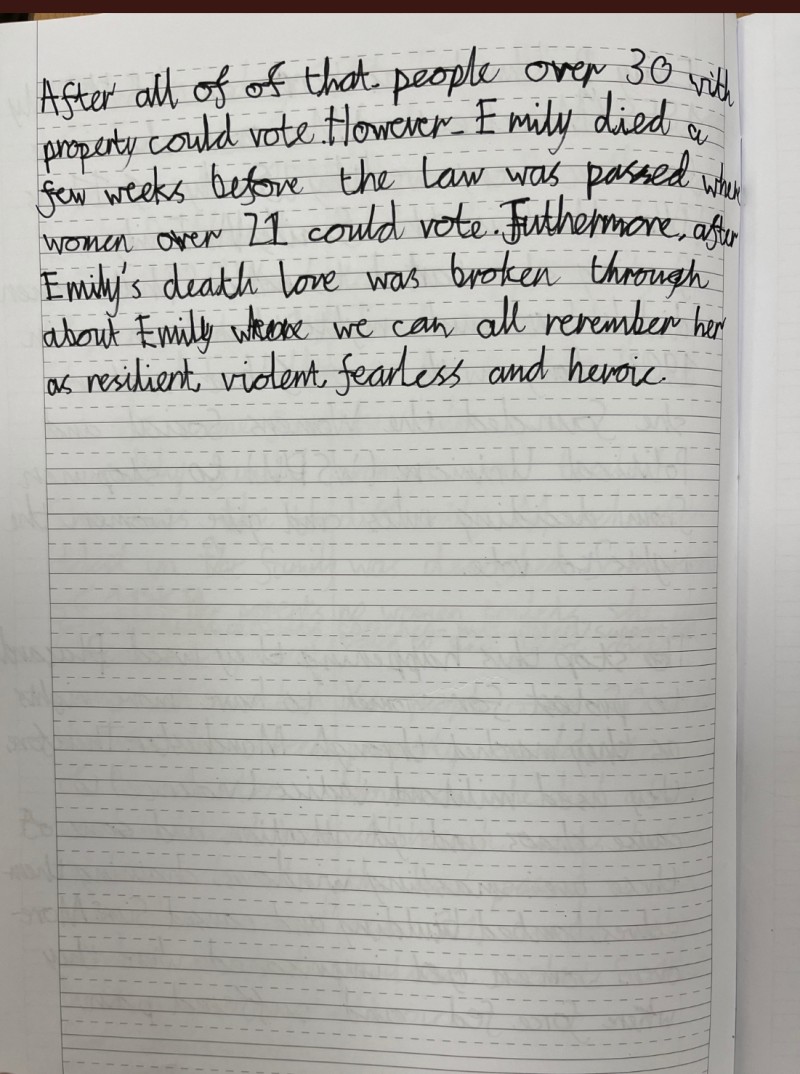 After all of of that. people over 30 with
property could vote. However - Emily died a
few weeks before the law was passed when
women over 21 could vote. Futhermore, after
Emily's death love was broken through
about Emily where we can all rerember her
as resilient, violent, fearless and heroic.